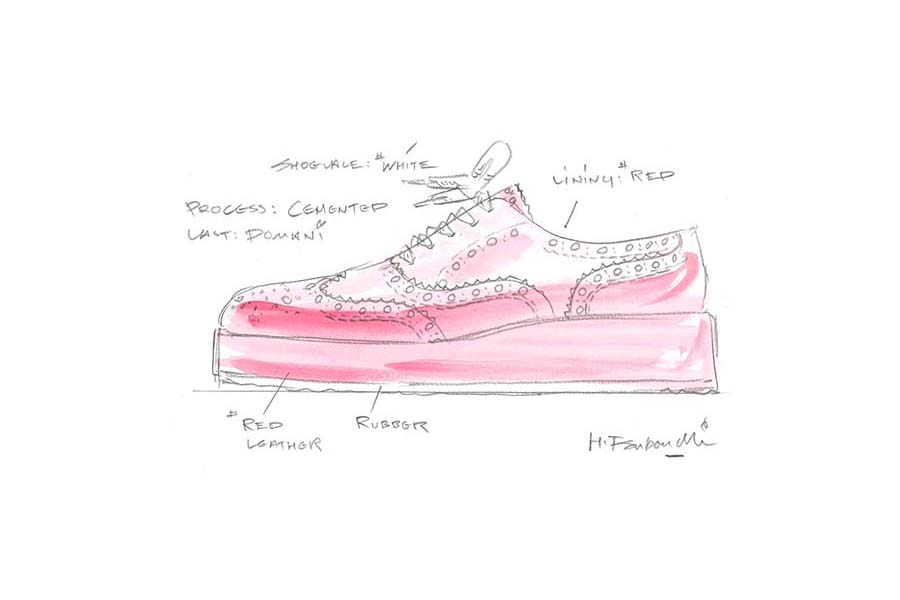 SHOELACE: #WHITE
LINING: #RED
PROCESS: CEMENTED
LAST: DOMANI
#RED
LEATHER
RUBBER